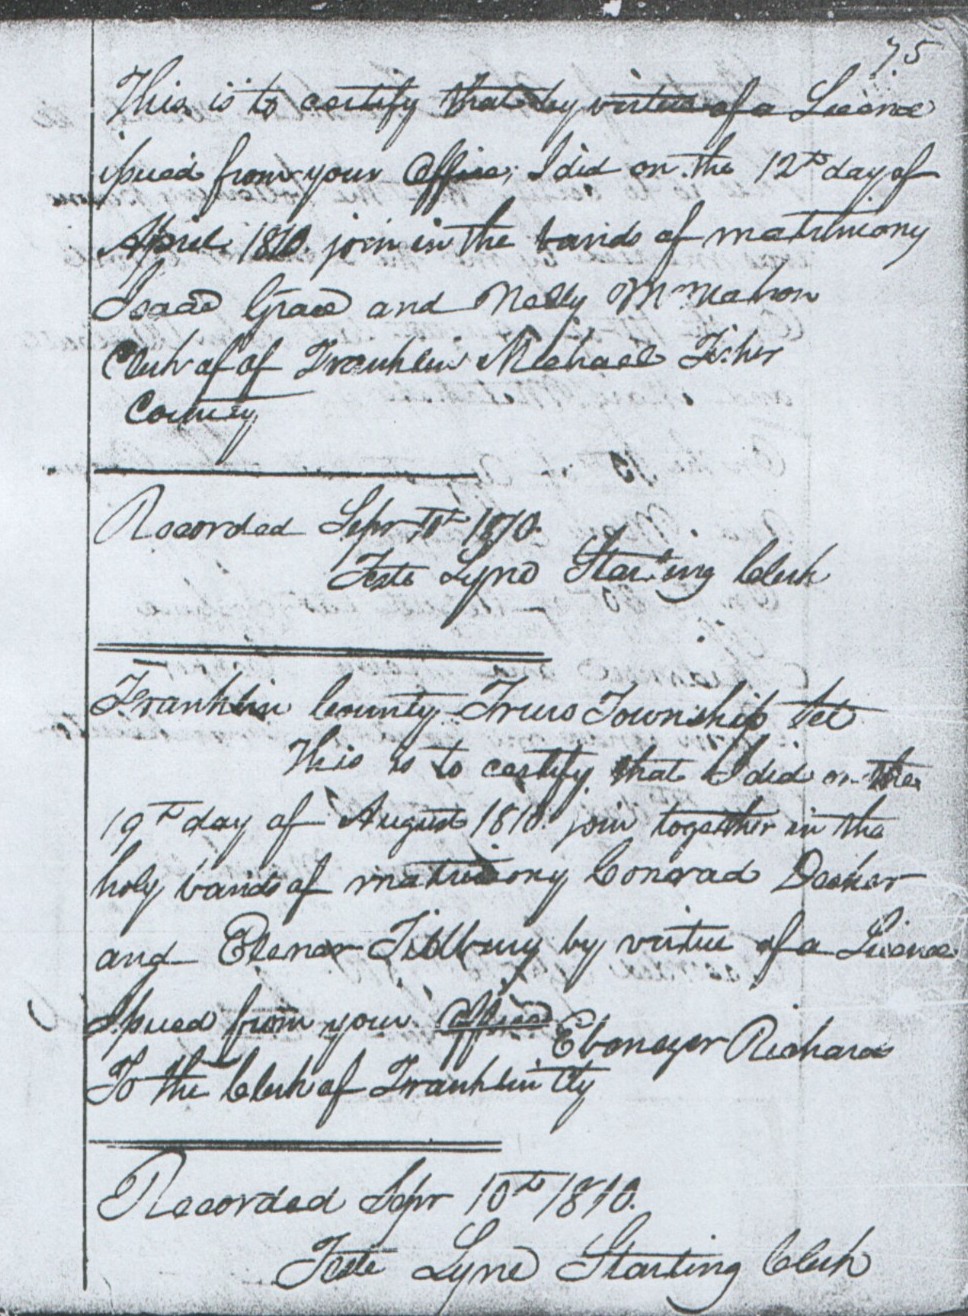 75
This is to certify that by virtue of a Licence
issued from your office, I did on the 12th day of
April 1810. join in the bands of matrimony
Isaac Grace and Nelly McMahon
Clerk of of Franklin Michael Fisher
County
Recorded Sepr 10th 1810.
Teste Lyne Starling Clerk
Franklin County Truro Township Sct
This is to certify that I did on the
19th day of August 1810. join together in the
holy bands of matrimony Conrad Decker
and Elenor Tillbury by virtue of a Licence
Issued from your office Ebenezer Richards
To the Clerk of Franklin Cty
Recorded Sepr 10th 1810.
Teste Lyne Starling Clerk